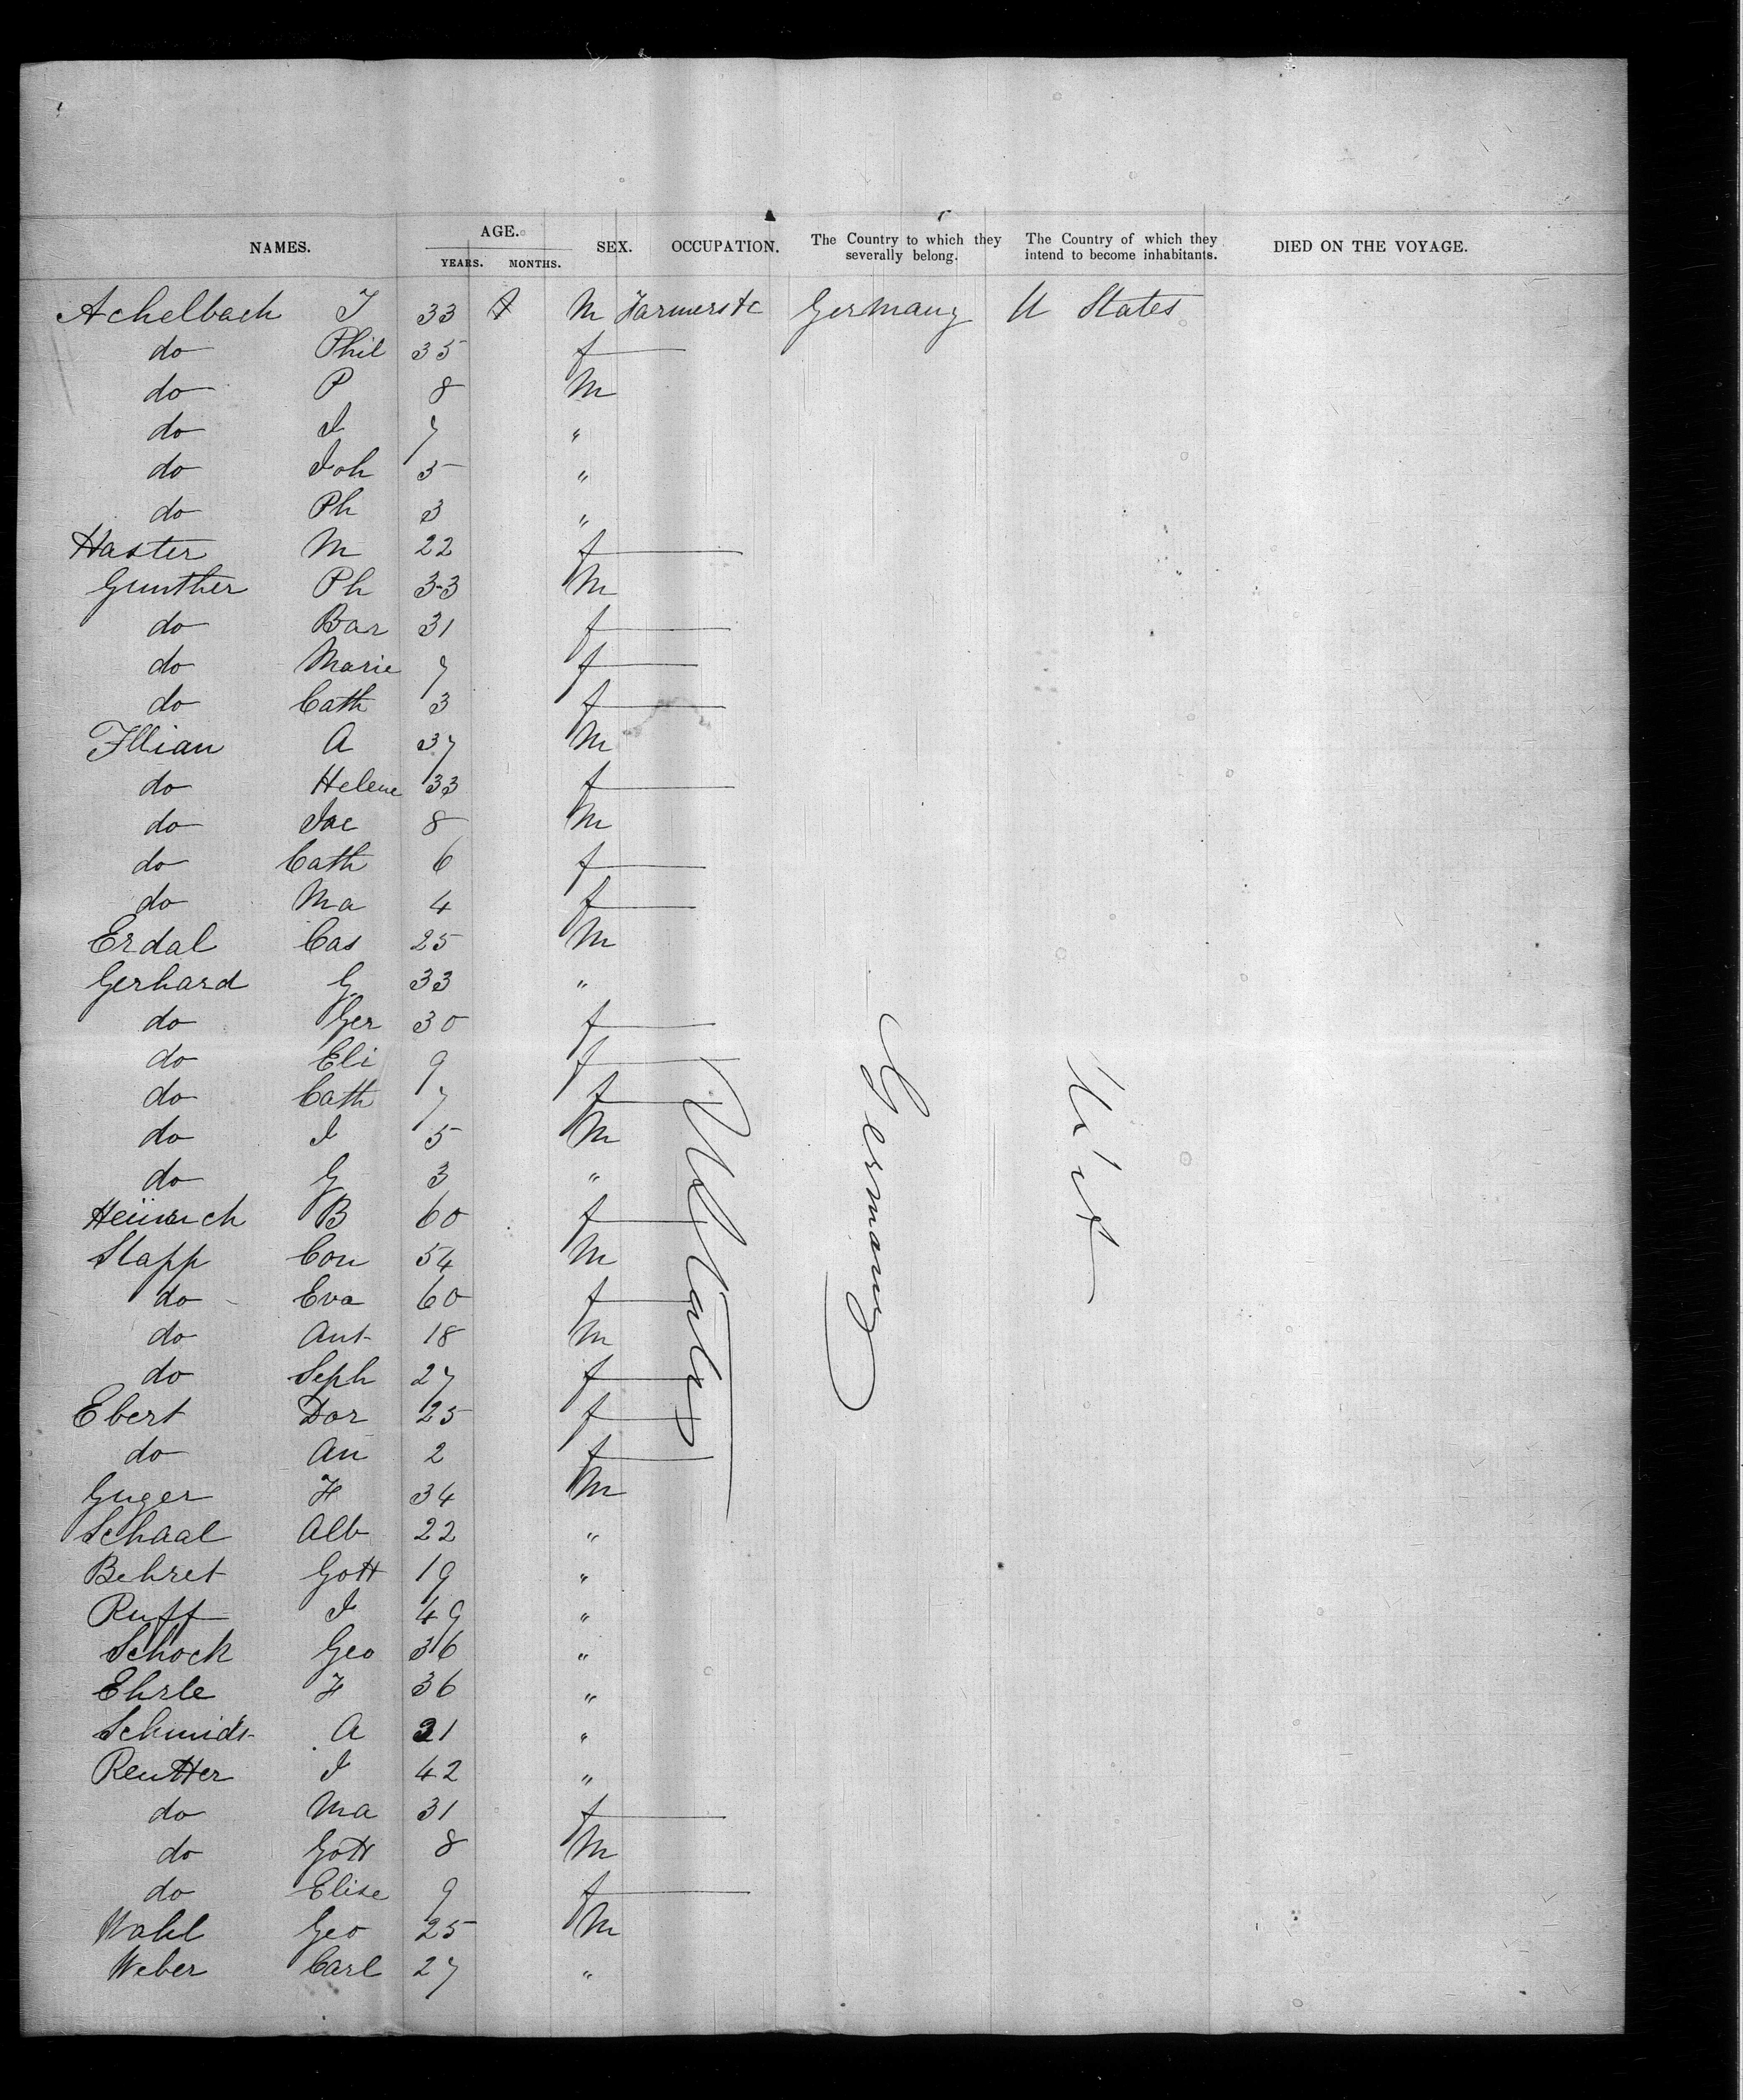 NAMES. AGE. YEARS. MONTHS. SEX. OCCUPATION. The Country to which they severally belong. The Country of which they intend to become inhabitants. DIED ON THE VOYAGE.
Achelbach J 33 M Farmer etc Germany U States
do Phil 35 f
do P 8 M
do J 7 "
do Joh 5 "
do Ph 3 "
Haster M 22 f
Gunther Ph 33 M
do Bar 31 f
do Marie 7 f
do Cath 3 f
Illian A 37 M
do Helene 33 f
do Jac 8 M
do Cath 6 f
do Ma 4 f
Erdal Cas 25 M
Gerhard G 33 "
do Ger 30 f
do Eli 9 f
do Cath 7 f
do J 5 M
do G 3 "
Heinrich B 60 f
Slapp Con 54 M
do Eva 60 f
do Ant 18 M
do Seph 27 f
Ebert Dor 25 f
do An 2 f
Guger H 34 M
Schaal Alb 22 "
Behret Gott 19 "
Ruff J 49 "
Schock Geo 36 "
Ehrle F 36 "
Schmidt A 31 "
Reutter J 42 "
do Ma 31 f
do Gott 8 M
do Elise 9 f
Wahl Geo 25 M
Weber Carl 27 "
Germany